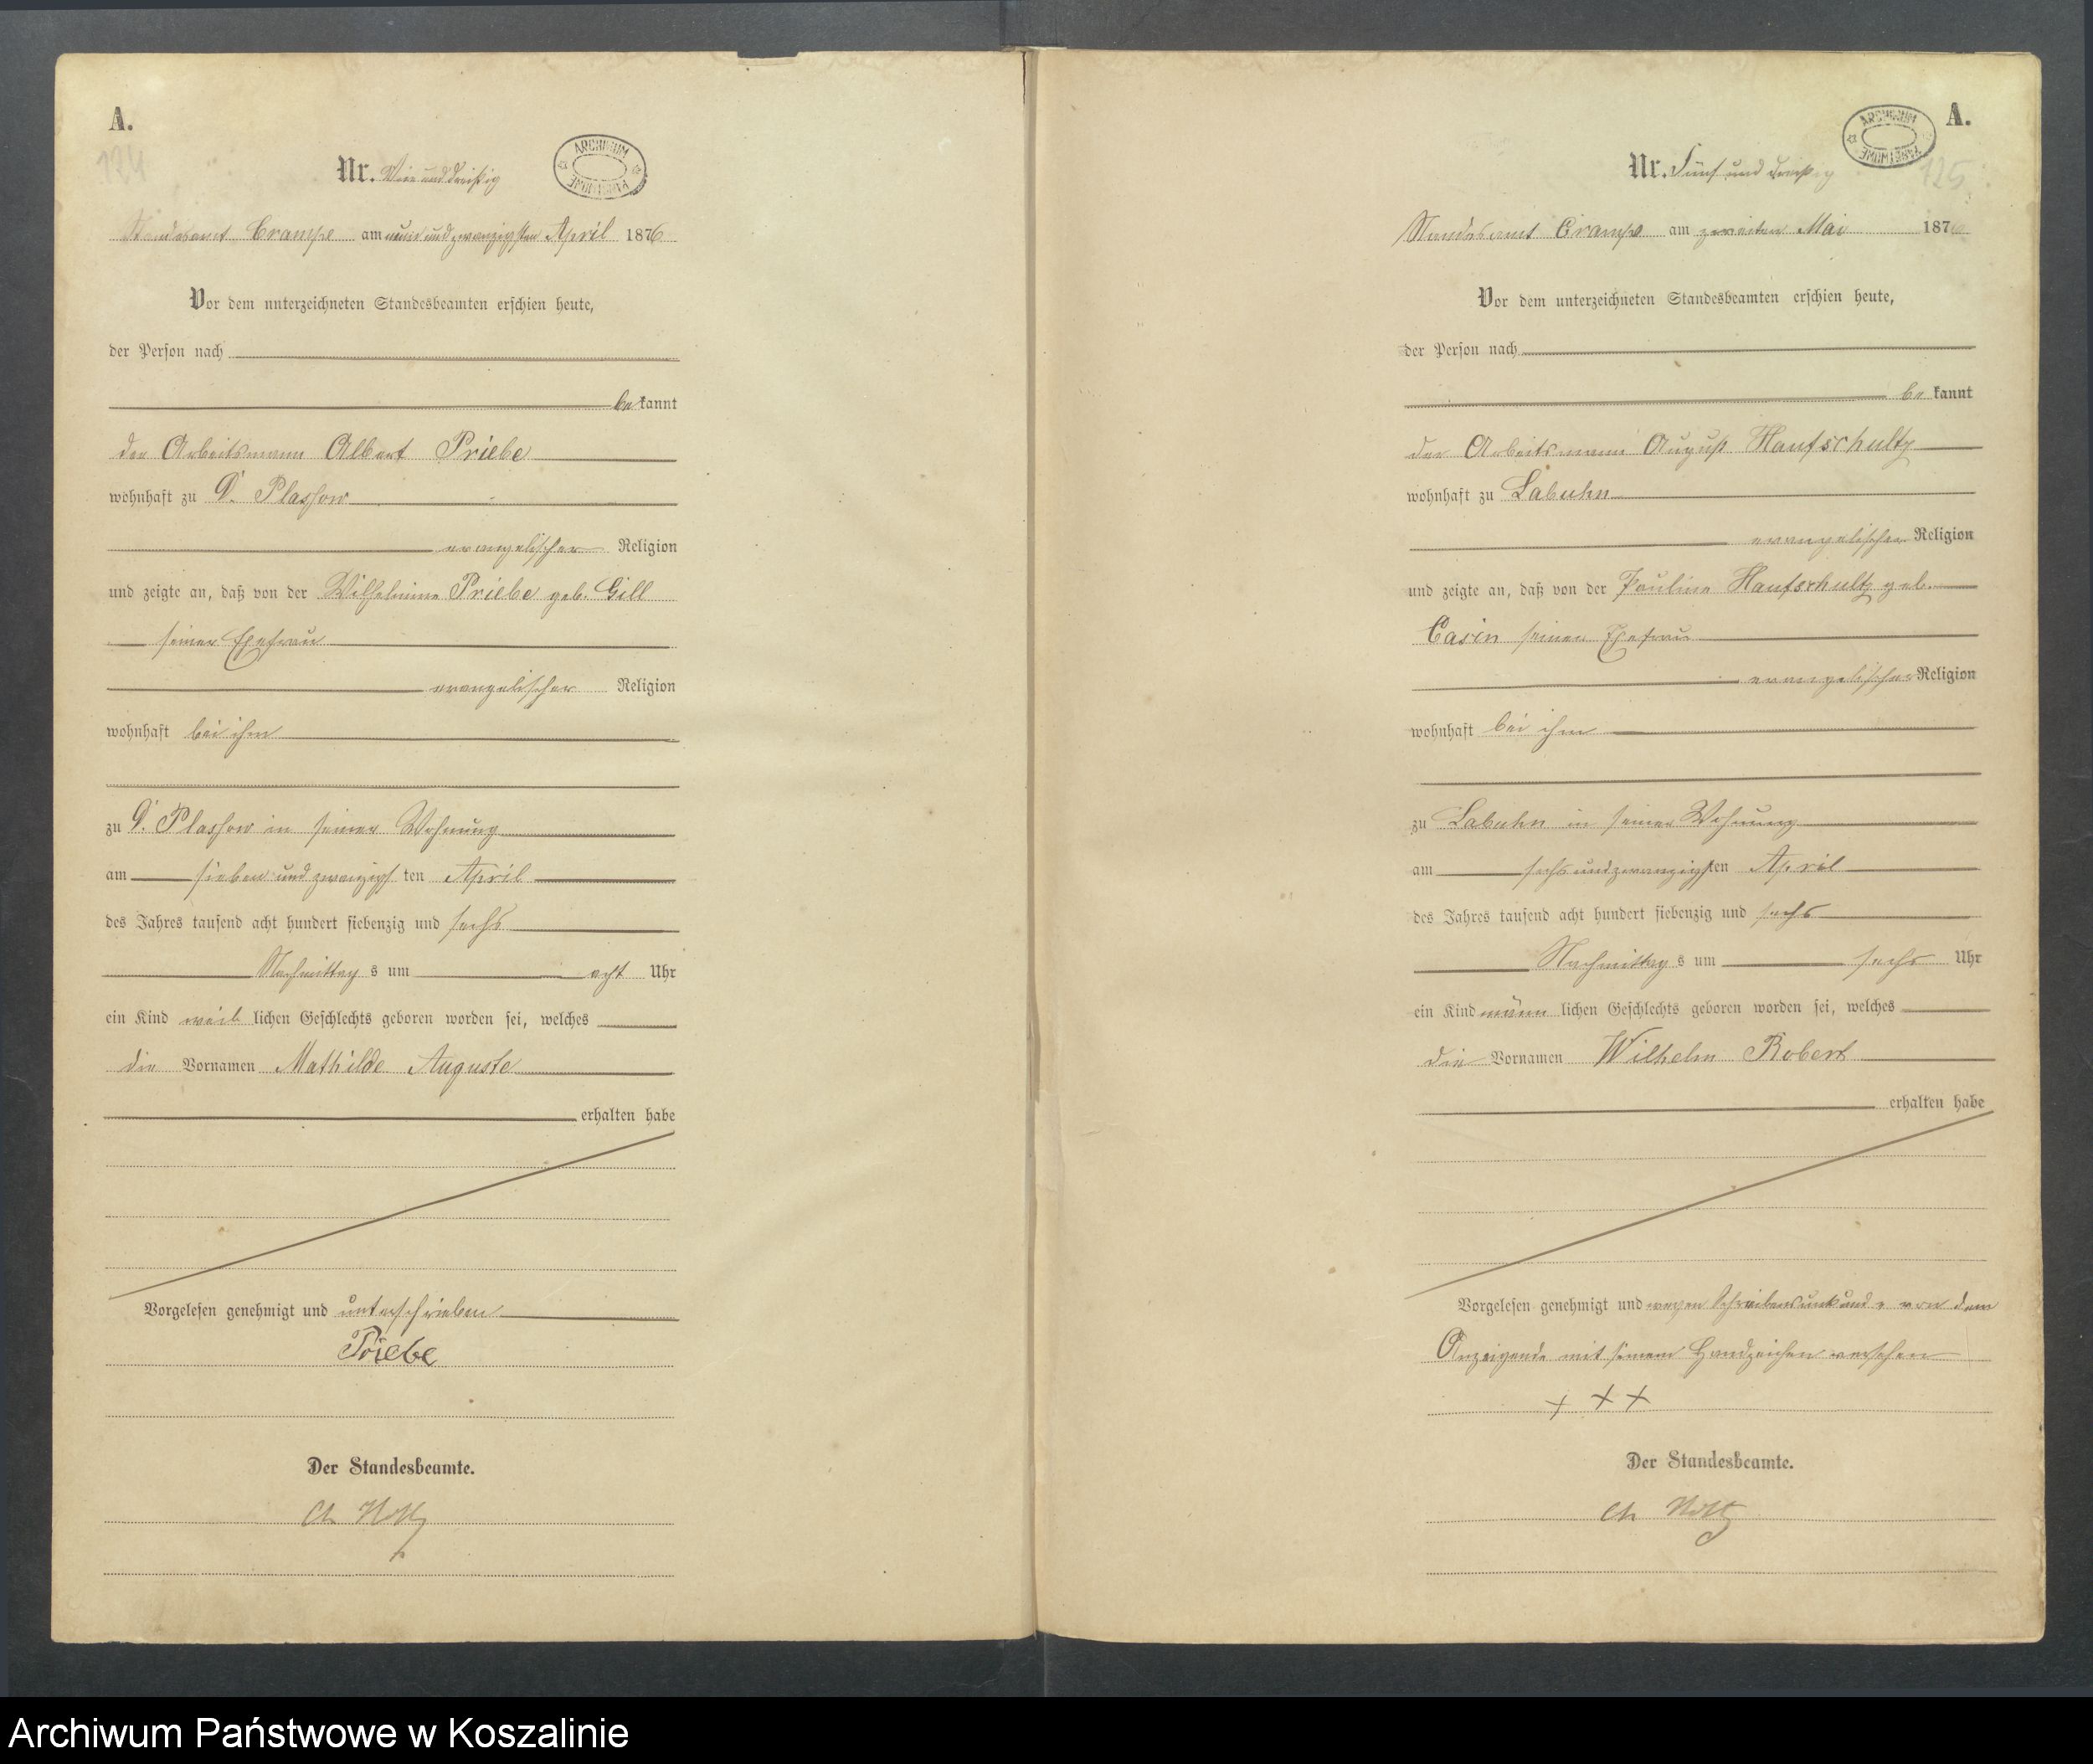 A.
124
Nr. Vier und dreißig
ARCHIWUM PAŃSTWOWE
Standesamt Crampe am neun und zwanzigsten April 1876
Vor dem unterzeichneten Standesbeamten erschien heute,
der Person nach
be kannt
der Arbeitsmann Albert Priebe
wohnhaft zu D. Plassow
evangelischer Religion
und zeigte an, daß von der Wilhelmine Priebe geb. Gill
seiner Ehefrau
evangelischer Religion
wohnhaft bei ihm
zu D. Plassow in seiner Wohnung
am sieben und zwanzigs ten April
des Jahres tausend acht hundert siebenzig und sechs
Nachmittag s um acht Uhr
ein Kind weib lichen Geschlechts geboren worden sei, welches
die Vornamen Mathilde Auguste
erhalten habe
Vorgelesen genehmigt und unterschrieben
Priebe
Der Standesbeamte.
A.
125
Nr. Fünf und dreißig
ARCHIWUM PAŃSTWOWE
Standesamt Crampe am zweiten Mai 1876
Vor dem unterzeichneten Standesbeamten erschien heute,
der Person nach
be kannt
der Arbeitsmann August Haufschultz
wohnhaft zu Labuhn
evangelischer Religion
und zeigte an, daß von der Pauline Haufschultz geb.
Casin seiner Ehefrau
evangelischer Religion
wohnhaft bei ihm
zu Labuhn in seiner Wohnung
am sechs und zwanzigs ten April
des Jahres tausend acht hundert siebenzig und sechs
Nachmittag s um sechs Uhr
ein Kind männ lichen Geschlechts geboren worden sei, welches
die Vornamen Wilhelm Robert
erhalten habe
Vorgelesen genehmigt und wegen Schreibensunkunde von dem
Anzeigende mit seinem Handzeichen versehen
+ + +
Der Standesbeamte.
Archiwum Państwowe w Koszalinie